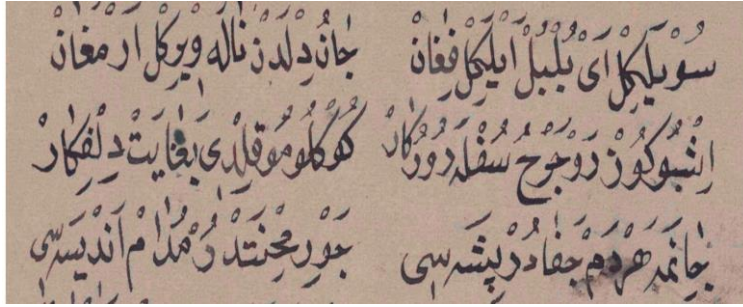 سُوْيلَيْكِلْ اَىْ بُلْبُلْ اَيْلَيْكِلْ فِغَانْ جَانُ دِلْدَنْ نَالَه وِيرْكِلْ اَرْمَغَانْ
اِشْبُو كَوْزْ رَوْ جَرْحُ سُفْلَه رُوزْكَارْ كُوكْلُومُو قِلْدِى بَغَايَتْ دِلْفِكَارْ
جَانِمَه هَرْدَمْ جَفَادُرْ پِيشَه سِى جَوْرِ مِحْنَتْدُرْ مُدَامْ اَنْدِيشَه سِى